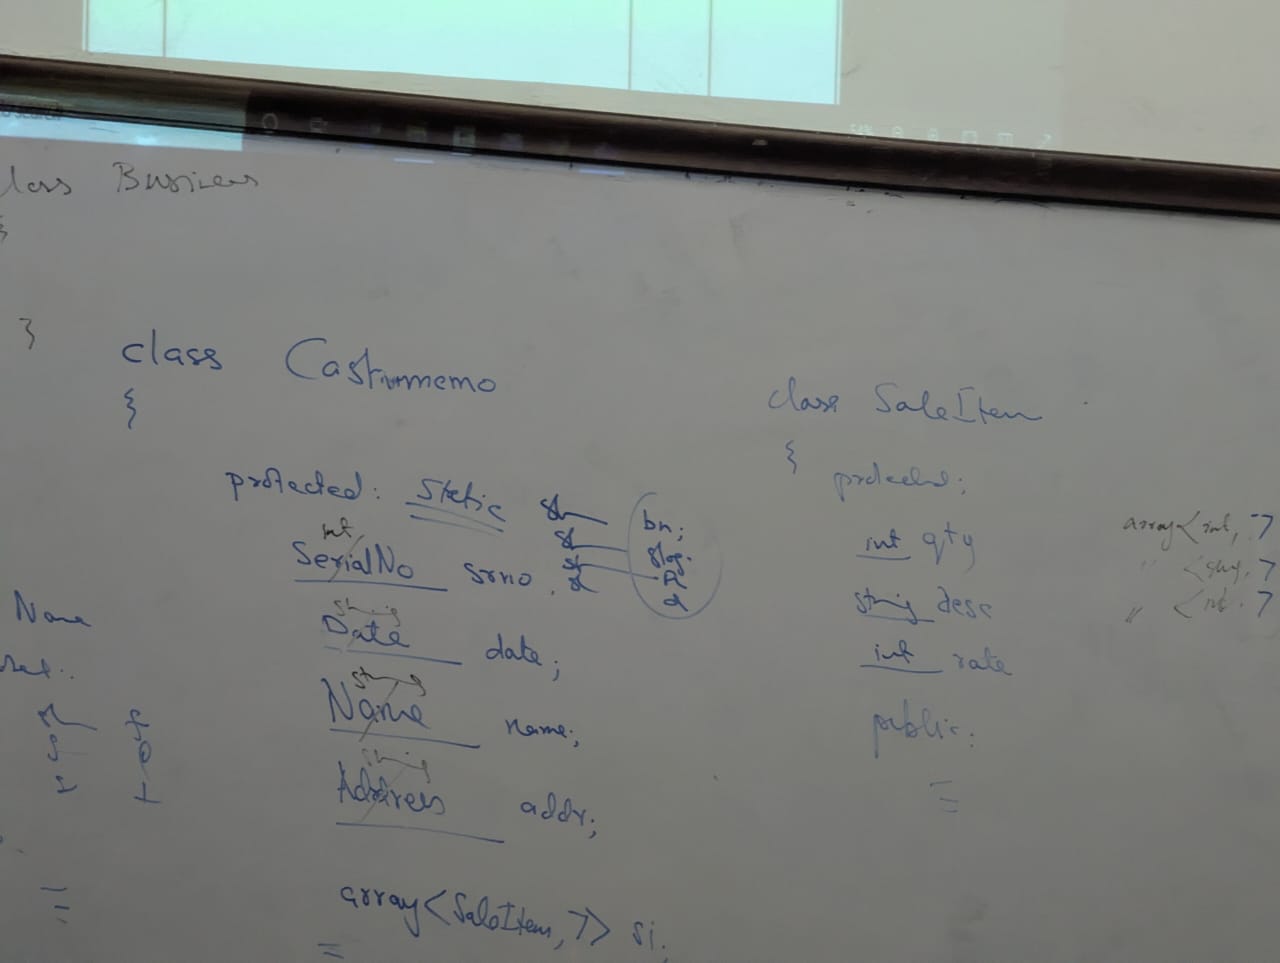 class Business
{
}
class Cashmemo
{
protected: static str bn;
st slog.
int
SerialNo srno.
string
Date date;
string
Name name;
string
Address addr;
array<SaleItem, 7> si;
Name
class SaleItem
{
protected:
int qty
string desc
int rate
public:
array<int, 7
" <string, 7
" <int. 7